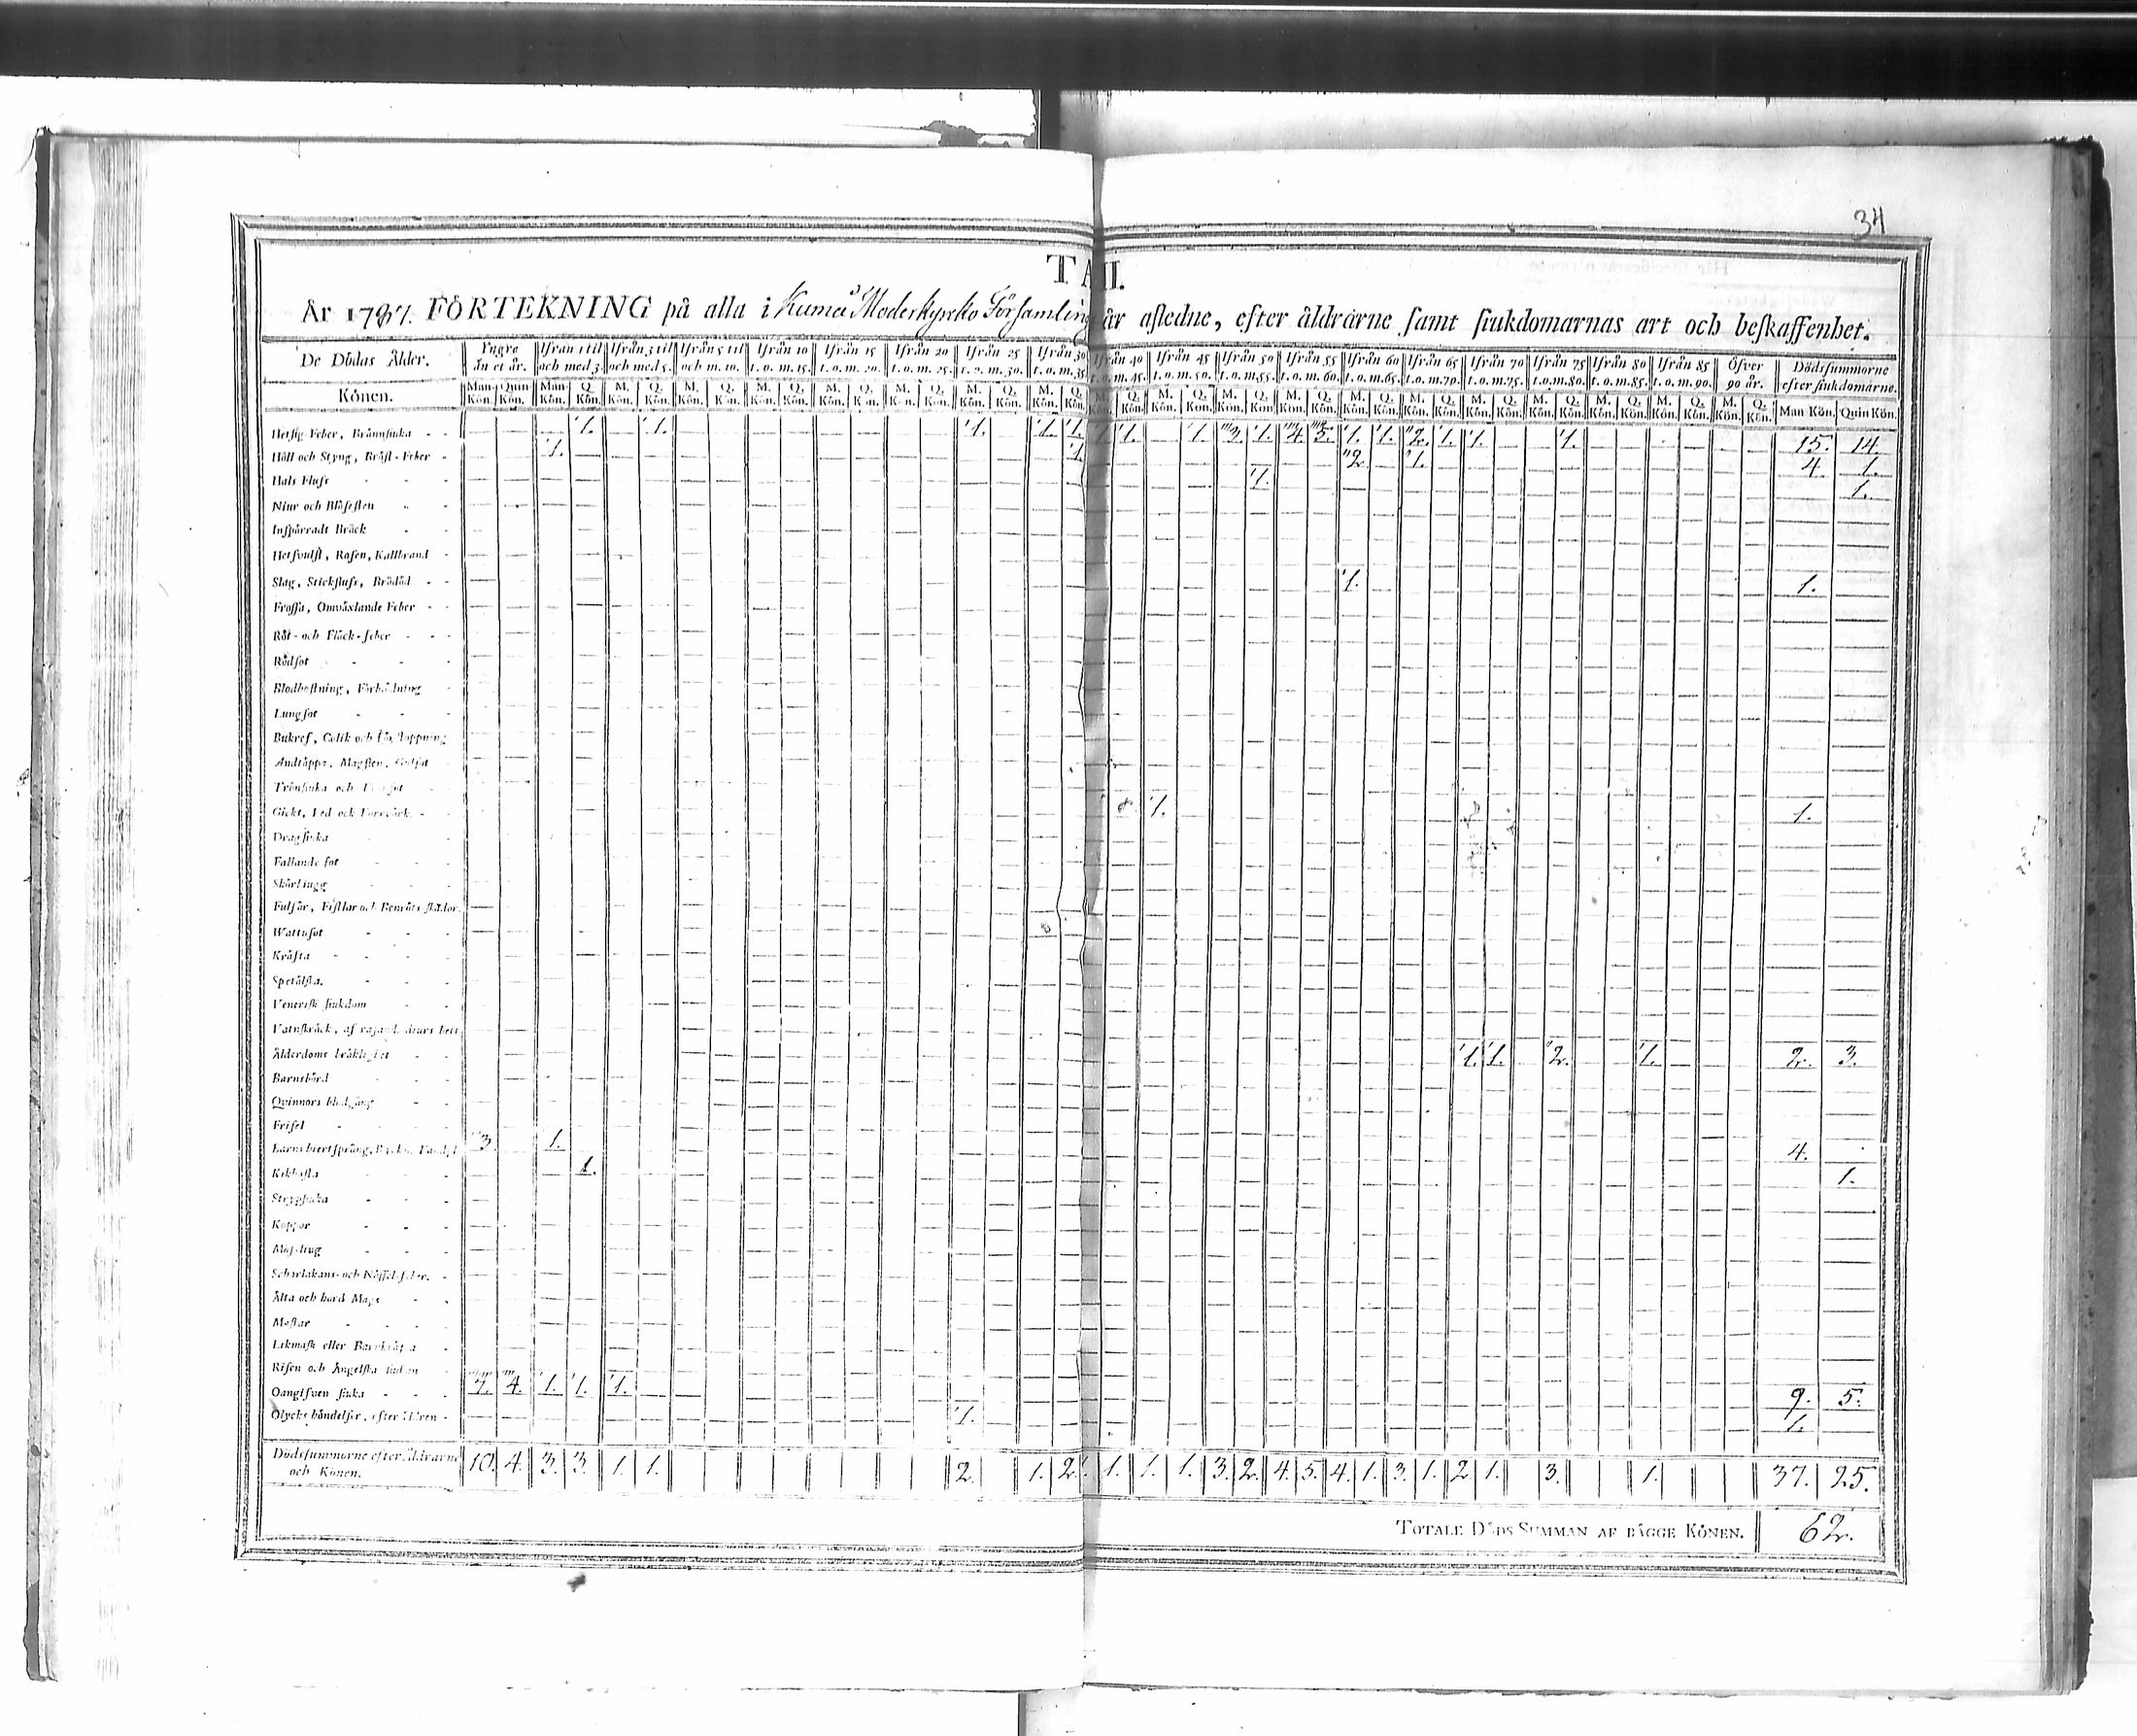 34
TA II.
År 1787. FÖRTEKNING på alla i Kumå Moderkyrko Församling år afledne, efter åldrarne samt siukdomarnas art och beskaffenhet.
De Dödas Ålder. Yngre än et år. Ifrån 1 til och med 3. Ifrån 3 til och med 5. Ifrån 5 til och m. 10. Ifrån 10 t. o. m. 15. Ifrån 15 t. o. m. 20. Ifrån 20 t. o. m. 25. Ifrån 25 t. o. m. 30. Ifrån 30 t. o. m. 35. Ifrån 40 t. o. m. 45. Ifrån 45 t. o. m. 50. Ifrån 50 t. o. m. 55. Ifrån 55 t. o. m. 60. Ifrån 60 t. o. m. 65. Ifrån 65 t. o. m. 70. Ifrån 70 t. o. m. 75. Ifrån 75 t. o. m. 80. Ifrån 80 t. o. m. 85. Ifrån 85 t. o. m. 90. Öfver 90 år. Dödssummorne efter siukdomarne.
Könen. Man Kön. Quin Kön. Man Kön. Q. Kön. M. Kön. Q. Kön. M. Kön. Q. Kön. M. Kön. Q. Kön. M. Kön. Q. Kön. M. Kön. Q. Kön. M. Kön. Q. Kön. M. Kön. Q. Kön. M. Kön. Q. Kön. M. Kön. Q. Kön. M. Kön. Q. Kön. M. Kön. Q. Kön. M. Kön. Q. Kön. M. Kön. Q. Kön. M. Kön. Q. Kön. M. Kön. Q. Kön. M. Kön. Q. Kön. M. Kön. Q. Kön. M. Kön. Q. Kön. Man Kön. Quin Kön.
Hetsig Feber, Brännsiuka 1. 1. 1. 1. 1. 1. 1. 1. 3. 1. 4. 5. 1. 1. 2. 1. 1. 1. 15. 14.
Håll och Styng, Bröst-Feber 1. 1. 2. 1. 4. 1.
Hals Fluss 1. 1.
Niur och Blåsesten
Inspärradt Bråck
Hetsvulst, Rosen, Kallbrand
Slag, Stickfluss, Brådöd 1. 1.
Frossa, Omväxlande Feber
Röt- och Fläck-feber
Rödsot
Blodhostning, Förblödning
Lungsot
Bukref, Colik och Förstoppning
Andtäppa, Magsten, Gulsot
Trånsiuka och
Gickt, Led och Torrvärk 1. 1.
Dragsiuka
Fallande sot
Skörbiugg
Fulsår, Fistlar och Benröts-skador
Wattusot
Kräfta
Spetälska.
Venerisk siukdom
Vatuskräck, af rasand. diurs bett
Ålderdoms bräklighet 1. 1. 2. 1. 2. 3.
Barnsbörd
Qvinnors blodgång
Frisel
Barns hiertsprång, 3. 1. 4.
Kikhosta 1. 1.
Strypsiuka
Koppor
Mässling
Scharlakans- och Nässel-feber.
Älta och hård Mage
Maskar
Likmask eller
Risen och Ängelska siukan
Oangifven siuka 7. 4. 1. 1. 1. 9. 5.
Olyckshändelser, efter 1. 1.
Dödssummorne efter åldrarne och Könen. 10. 4. 3. 3. 1. 1. 2. 1. 2. 1. 1. 1. 3. 2. 4. 5. 4. 1. 3. 1. 2. 1. 3. 1. 37. 25.
TOTALE DÖDS SUMMAN AF BÄGGE KÖNEN. 62.